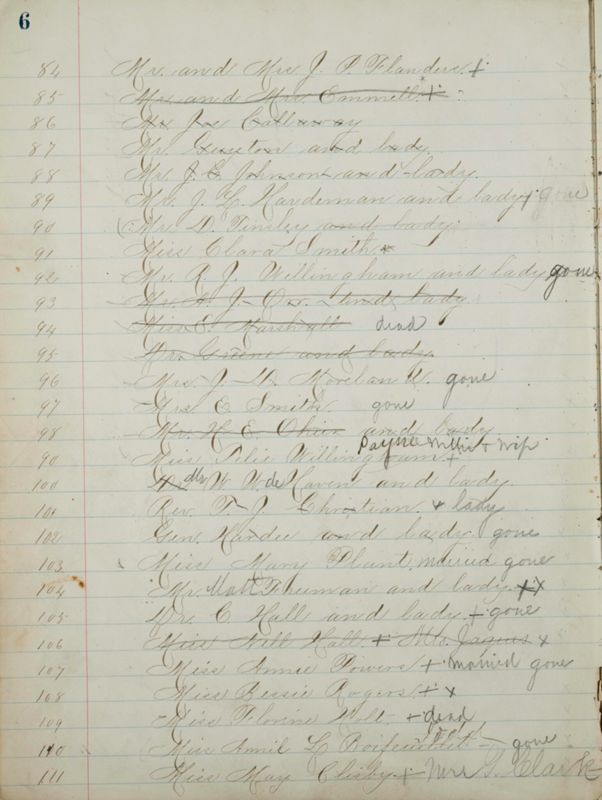 6
84 Mr. and Mrs J. P. Flanders. +
85 Mr. and Mrs. Emmell. +
86 Mr Joe Callaway
87 Mr. Guyton and lady.
88 Mr J. E. Johnson and lady.
89 Mr. J. L. Hardeman and lady + gone
90 Mr. D. Tinsley and lady.
91 Miss Clara Smith x
92 Mr. R J. Willingham and lady gone
93 and lady
94 Miss E. Marshall dead
95 Mr. Greene and lady.
96 Mrs. J. D. gone
97 Mrs E Smith. gone
98 Mr. H. E. and lady
90 Miss Willingham + + wife
100 Mr W. W. deHaven and lady
101 Rev. T. J. Christian. + lady
102 Gen. Hardee and lady gone
103 Miss Mary Plant. married gone
104 Mr. Freeman and lady. + x
105 Dr. C Hall and lady + gone
106 Miss Nell Hall. + Mr. Jaques x
107 Miss Annie Powers + married gone
108 Miss Bessie Rogers + x
109 Miss Florine Holt - + dead
110 Miss L. Boifeuillet - gone
111 Miss May Clisby + Mrs Clark